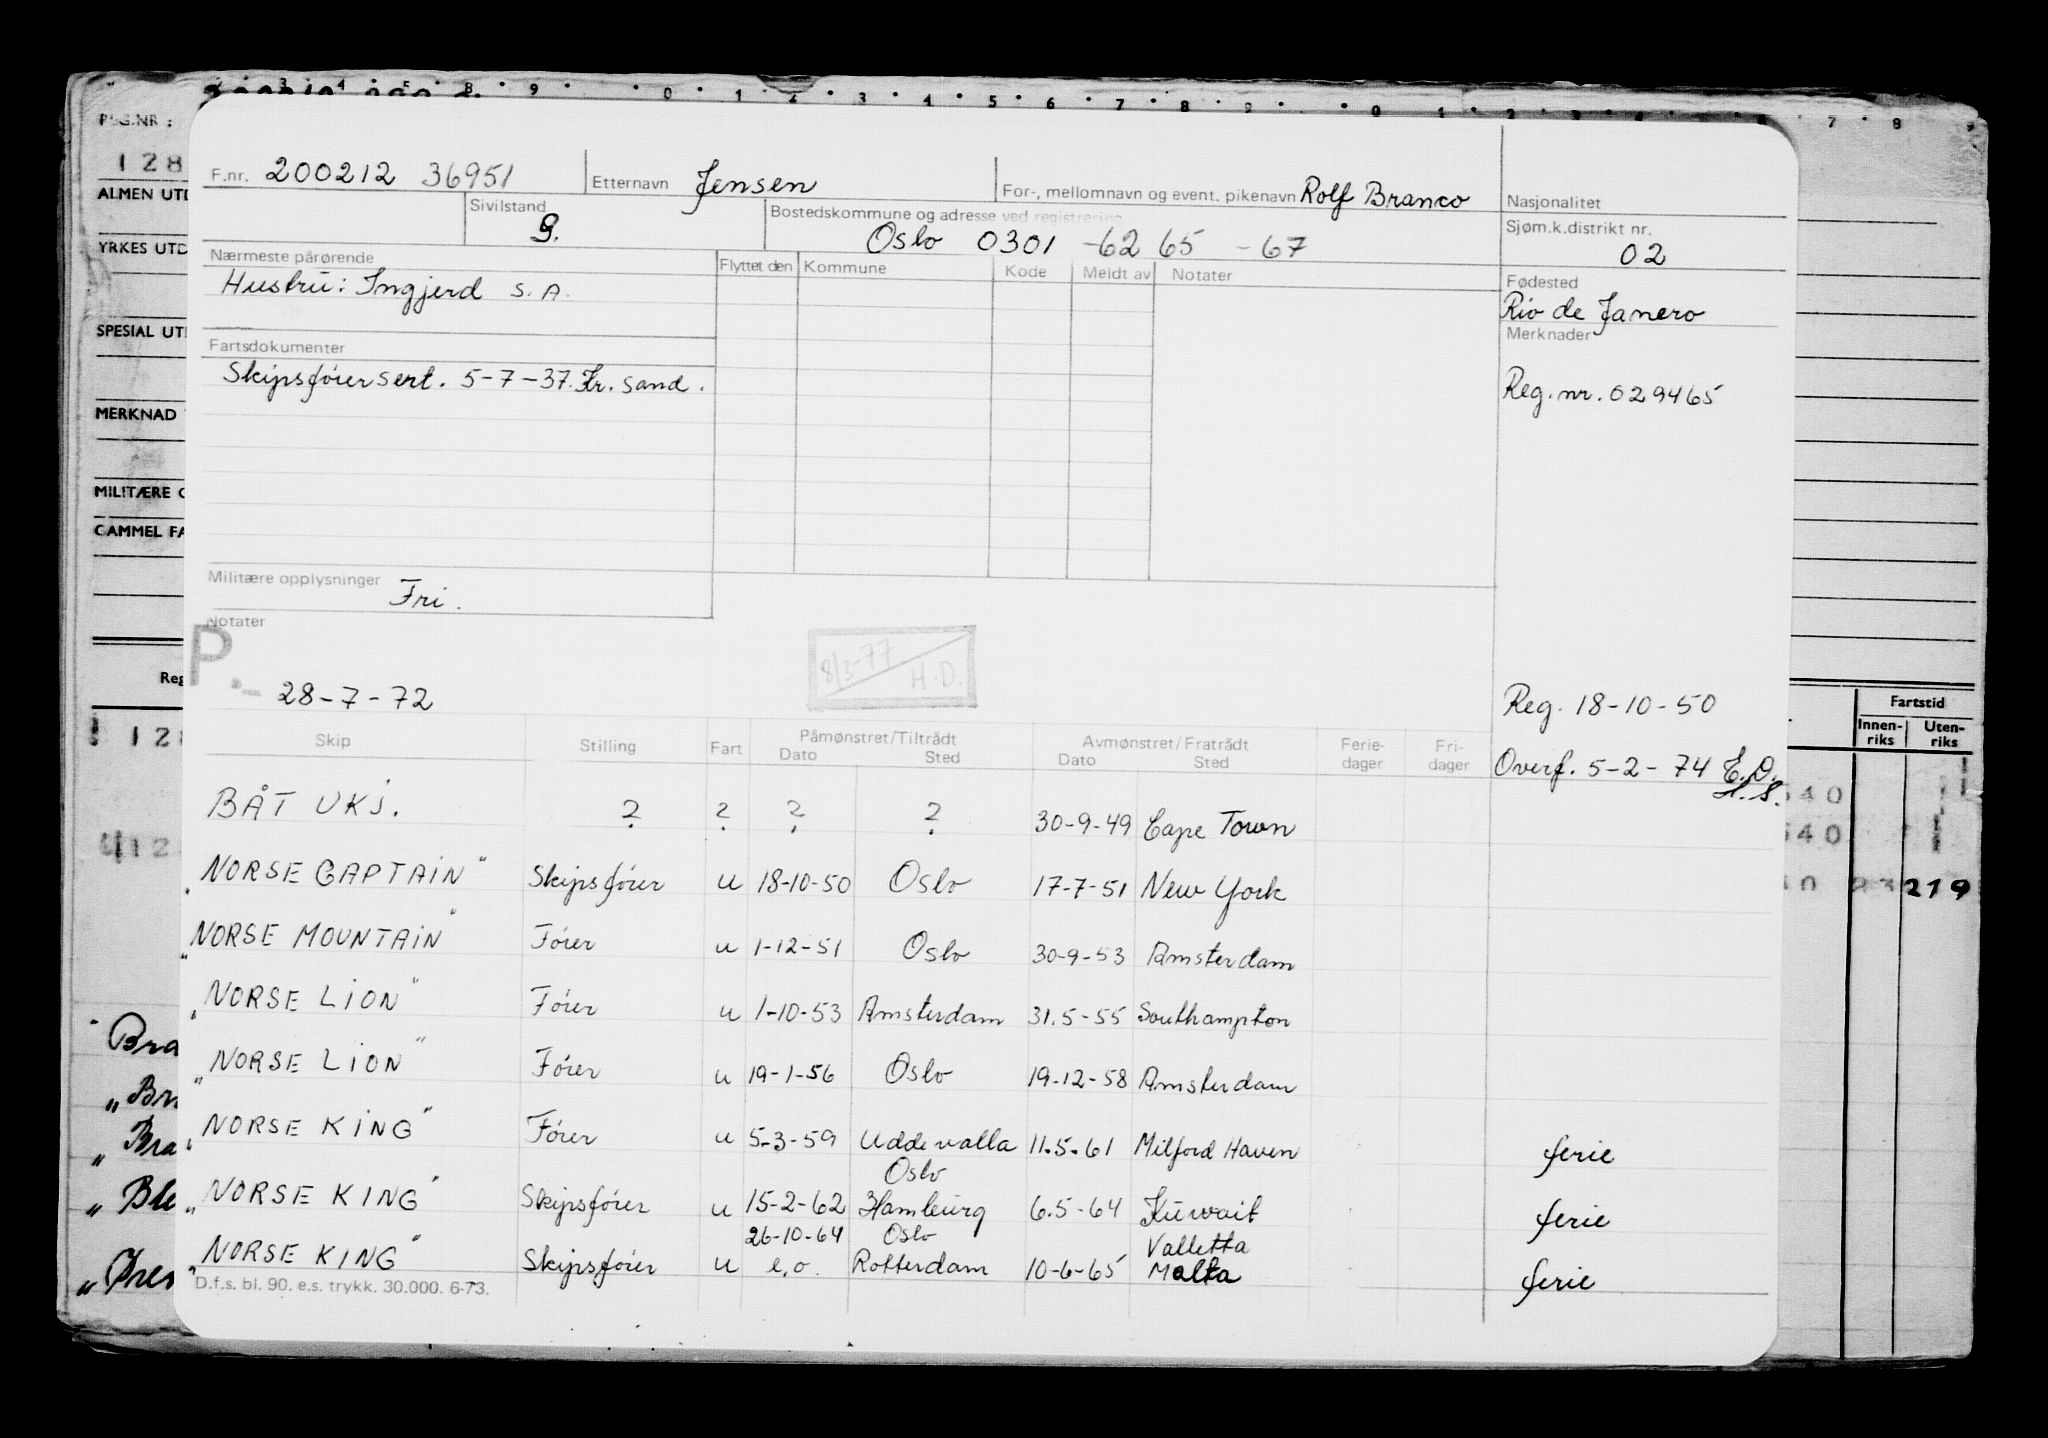 REG.NR:
128
ALMEN UTD
YRKES UTD
SPESIAL UT
MERKNAD
MILITÆRE O
GAMMEL FA
Reg
128
Fartstid
Innen-riks Uten-riks
540
540
219
Bra
„Br
„Bra
„Ble
F.nr. 200212 36951 Etternavn Jensen For-, mellomnavn og event. pikenavn Rolf Branco Nasjonalitet
Sivilstand G. Bostedskommune og adresse ved registrering Oslo 0301 -62 65 -67 Sjøm.k.distrikt nr. 02
Nærmeste pårørende Flyttet den Kommune Kode Meldt av Notater Fødested
Hustru: Ingjerd S. A. Rio de Janero
Fartsdokumenter Merknader
Skipsførersert. 5-7-37. Kr. sand. Reg. nr. 029465
Militære opplysninger Fri.
Notater
P.
8/3-77 H.D.
- 28-7-72 Reg. 18-10-50
Skip Stilling Fart Påmønstret/Tiltrådt Dato Sted Avmønstret/Fratrådt Dato Sted Ferie-dager Fri-dager Overf. 5-2-74 E.D.
H.S.
BÅT UKJ. ? ? ? ? 30-9-49 Cape Town
„NORSE CAPTAIN" Skipsfører u 18-10-50 Oslo 17-7-51 New York
„NORSE MOUNTAIN" Fører u 1-12-51 Oslo 30-9-53 Amsterdam
„NORSE LION" Fører u 1-10-53 Amsterdam 31.5-55 Southampton
„NORSE LION" Fører u 19-1-56 Oslo 19-12-58 Amsterdam
„NORSE KING" Fører u 5-3-59 Uddevalla 11.5.61 Milford Haven ferie
„NORSE KING" Skipsfører u 15-2-62 Oslo Hamburg 6.5-64 Kuwait ferie
„NORSE KING" Skipsfører u 26-10-64 e.o. Oslo Rotterdam 10-6-65 Valletta Malta ferie
D.f.s. bl. 90. e.s. trykk. 30.000. 6-73.